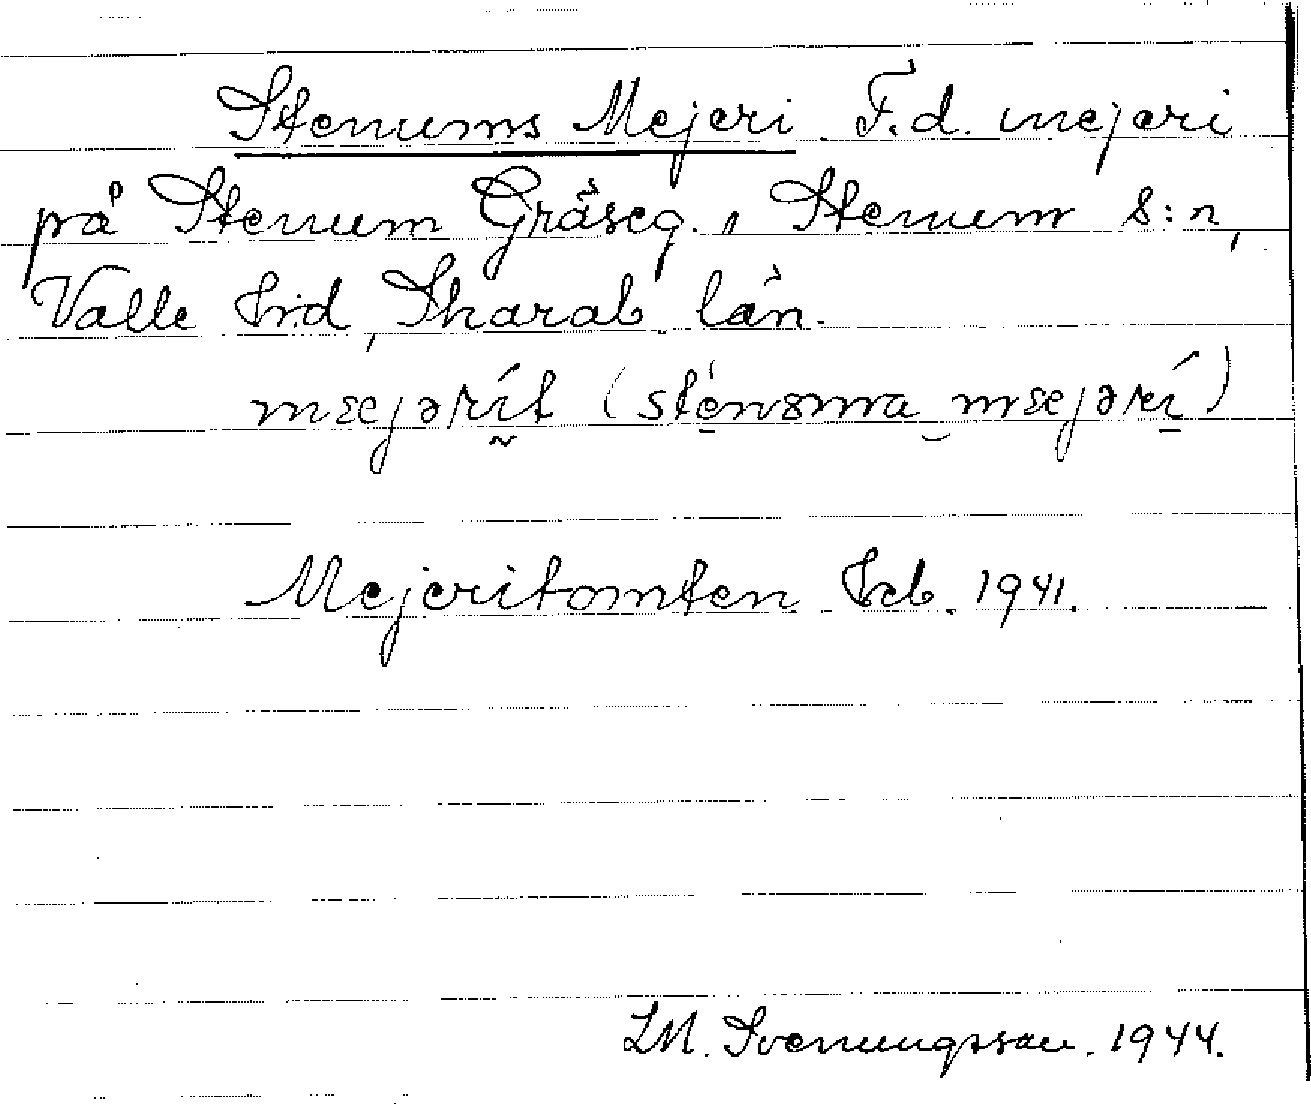 Stenums Mejeri F.d. mejeri
på Stenum Gråseg., Stenum s:n,
Valle hd, Skarab. län.
mejərít (sténsma mejərí)
Mejeritomten Feb. 1941.
Svenungsson. 1944.